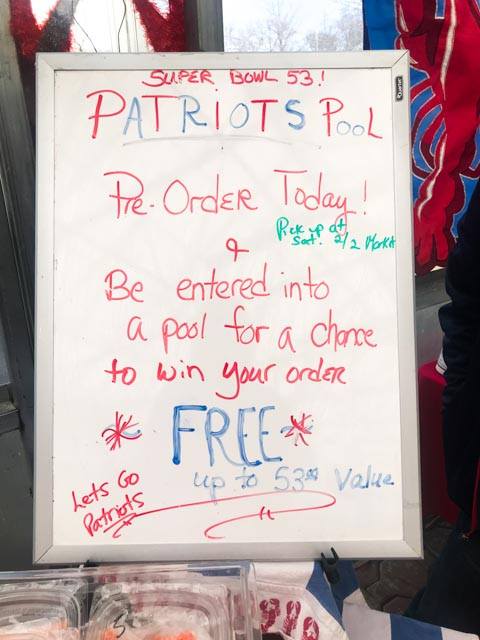 SUPER BOWL 53!
PATRIOTS POOL
Pre-Order Today!
Pick up at
Sat. 2/2 Market
&
Be entered into
a pool for a chance
to win your order
FREE
up to 53⁰⁰ Value
Lets Go
Patriots